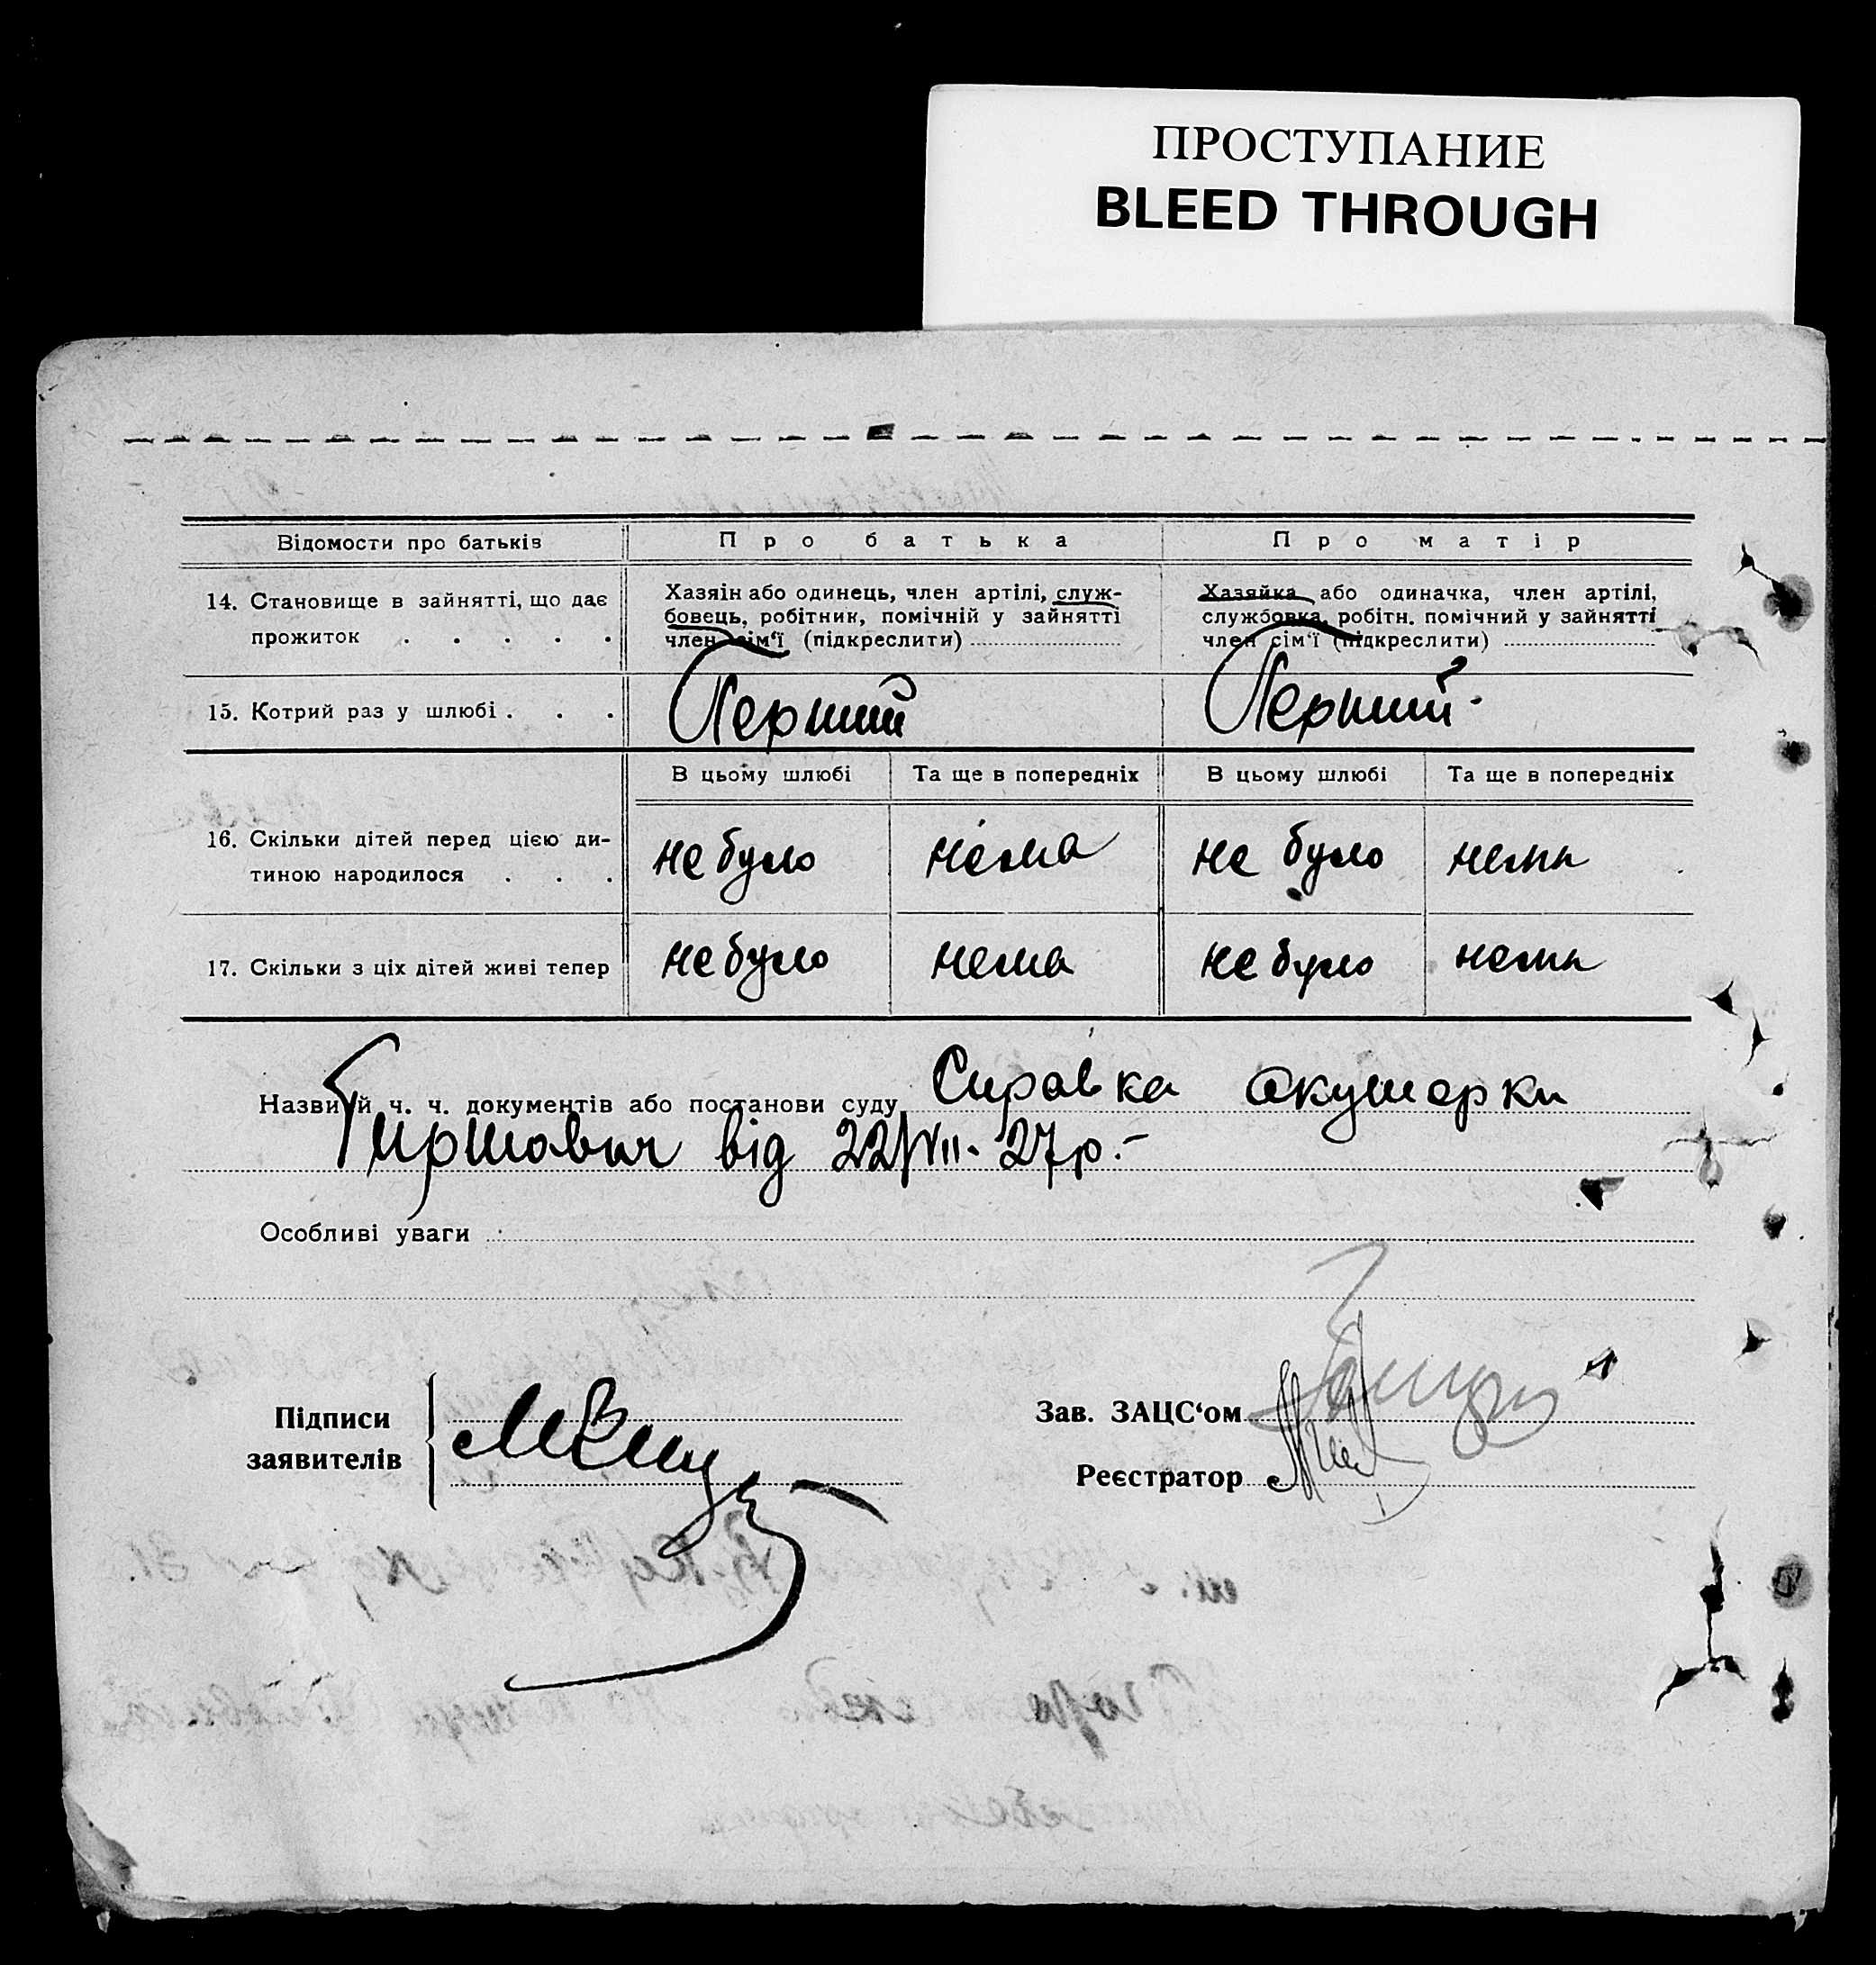 ПРОСТУПАНИЕ
BLEED THROUGH
Відомости про батьків
Про батька
Про матір
14. Становище в зайнятті, що дає
прожиток . . . . .
Хазяін або одинець, член артілі, служ-
бовець, робітник, помічній у зайнятті
член сім'ї (підкреслити)
Хазяйка або одиначка, член артілі,
службовка, робітн. помічний у зайнятті
член сім'ї (підкреслити)
15. Котрий раз у шлюбі . . .
Перший
Перший
В цьому шлюбі
Та ще в попередніх
В цьому шлюбі
Та ще в попередніх
16. Скільки дітей перед цією ди-
тиною народилося . . .
не було
нема
не було
нема
17. Скільки з ціх дітей живі тепер
не було
нема
не було
нема
Назви й ч. ч. документів або постанови суду Справка акушерки
Гиршович від 22/VII-27р.-
Особливі уваги
Підписи
заявителів
Зав. ЗАЦС'ом
Реєстратор